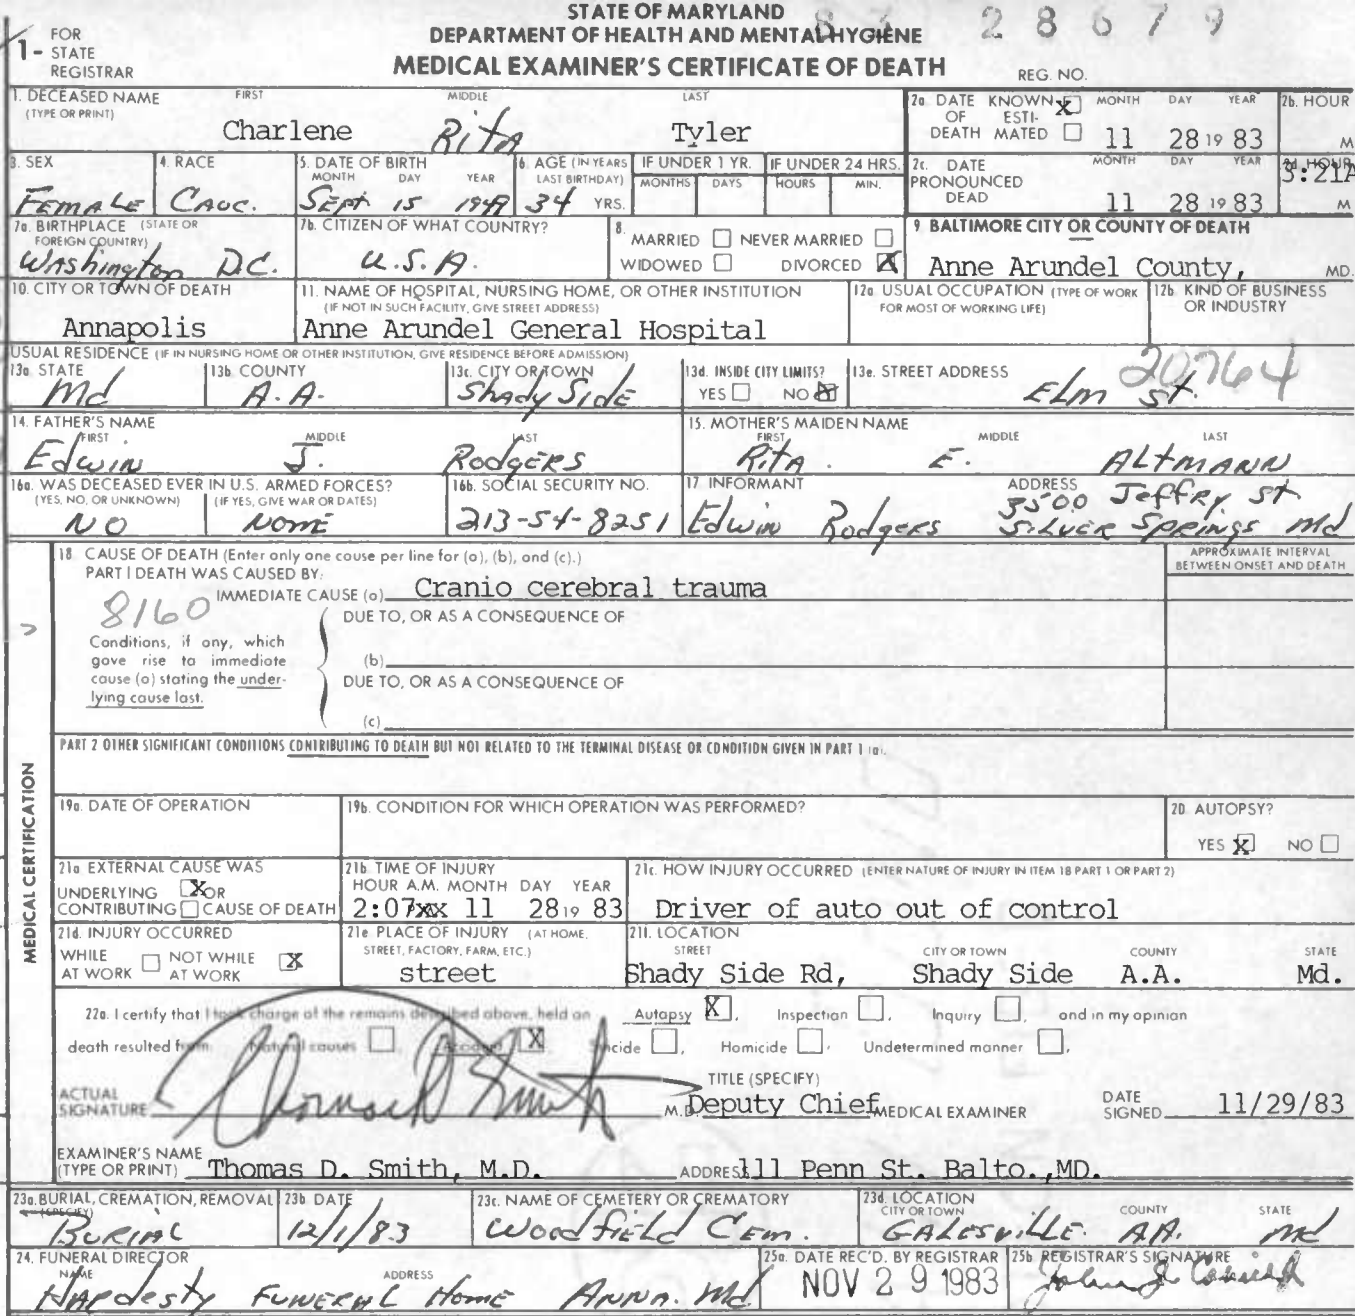 STATE OF MARYLAND
DEPARTMENT OF HEALTH AND MENTAL HYGIENE
MEDICAL EXAMINER'S CERTIFICATE OF DEATH
83 28679
REG. NO.
1- FOR STATE REGISTRAR
1. DECEASED NAME (TYPE OR PRINT) FIRST MIDDLE LAST
Charlene Rita Tyler
2a. DATE OF DEATH KNOWN X ESTIMATED MONTH DAY YEAR
11 28 19 83
2b. HOUR M
3. SEX
Female
4. RACE
Cauc.
5. DATE OF BIRTH MONTH DAY YEAR
Sept 15 1949
6. AGE (IN YEARS LAST BIRTHDAY)
34 YRS.
IF UNDER 1 YR. MONTHS DAYS
IF UNDER 24 HRS. HOURS MIN.
2c. DATE PRONOUNCED DEAD MONTH DAY YEAR
11 28 19 83
2d. HOUR
3:21A M
7a. BIRTHPLACE (STATE OR FOREIGN COUNTRY)
Washington D.C.
7b. CITIZEN OF WHAT COUNTRY?
U.S.A.
8. MARRIED NEVER MARRIED
WIDOWED DIVORCED X
9. BALTIMORE CITY OR COUNTY OF DEATH
Anne Arundel County, MD.
10. CITY OR TOWN OF DEATH
Annapolis
11. NAME OF HOSPITAL, NURSING HOME, OR OTHER INSTITUTION
(IF NOT IN SUCH FACILITY, GIVE STREET ADDRESS)
Anne Arundel General Hospital
12a. USUAL OCCUPATION (TYPE OF WORK FOR MOST OF WORKING LIFE)
12b. KIND OF BUSINESS OR INDUSTRY
USUAL RESIDENCE (IF IN NURSING HOME OR OTHER INSTITUTION, GIVE RESIDENCE BEFORE ADMISSION)
13a. STATE
Md
13b. COUNTY
A.A.
13c. CITY OR TOWN
Shady Side
13d. INSIDE CITY LIMITS?
YES NO X
13e. STREET ADDRESS
20764
Elm St.
14. FATHER'S NAME FIRST MIDDLE LAST
Edwin J. Rodgers
15. MOTHER'S MAIDEN NAME FIRST MIDDLE LAST
Rita. E. Altmann
16a. WAS DECEASED EVER IN U.S. ARMED FORCES?
(YES, NO, OR UNKNOWN) (IF YES, GIVE WAR OR DATES)
NO NONE
16b. SOCIAL SECURITY NO.
213-54-8251
17. INFORMANT ADDRESS
Edwin Rodgers 3500 Jeffry St
Silver Springs Md
18. CAUSE OF DEATH (Enter only one cause per line for (a), (b), and (c).)
PART I DEATH WAS CAUSED BY:
APPROXIMATE INTERVAL BETWEEN ONSET AND DEATH
IMMEDIATE CAUSE (a) Cranio cerebral trauma
8160
DUE TO, OR AS A CONSEQUENCE OF
Conditions, if any, which gave rise to immediate cause (a) stating the underlying cause last.
(b)
DUE TO, OR AS A CONSEQUENCE OF
(c)
PART 2 OTHER SIGNIFICANT CONDITIONS CONTRIBUTING TO DEATH BUT NOT RELATED TO THE TERMINAL DISEASE OR CONDITION GIVEN IN PART 1 (a).
MEDICAL CERTIFICATION
19a. DATE OF OPERATION
19b. CONDITION FOR WHICH OPERATION WAS PERFORMED?
20. AUTOPSY?
YES X NO
21a. EXTERNAL CAUSE WAS
UNDERLYING X OR
CONTRIBUTING CAUSE OF DEATH
21b. TIME OF INJURY
HOUR A.M. MONTH DAY YEAR
2:07 xx 11 28 19 83
21c. HOW INJURY OCCURRED (ENTER NATURE OF INJURY IN ITEM 18 PART 1 OR PART 2)
Driver of auto out of control
21d. INJURY OCCURRED
WHILE AT WORK NOT WHILE AT WORK X
21e. PLACE OF INJURY (AT HOME, STREET, FACTORY, FARM, ETC.)
street
21f. LOCATION
STREET CITY OR TOWN COUNTY STATE
Shady Side Rd, Shady Side A.A. Md.
22a. I certify that I took charge of the remains described above, held an Autopsy X, Inspection, Inquiry, and in my opinion
death resulted from: Natural causes, Accident X, Suicide, Homicide, Undetermined manner,
ACTUAL SIGNATURE Thomas D Smith M.D.
TITLE (SPECIFY)
Deputy Chief MEDICAL EXAMINER
DATE SIGNED 11/29/83
EXAMINER'S NAME (TYPE OR PRINT) Thomas D. Smith, M.D.
ADDRESS 111 Penn St. Balto.,MD.
23a. BURIAL, CREMATION, REMOVAL (SPECIFY)
Burial
23b. DATE
12/1/83
23c. NAME OF CEMETERY OR CREMATORY
Woodfield Cem.
23d. LOCATION CITY OR TOWN COUNTY STATE
Galesville. A.A. Md
24. FUNERAL DIRECTOR NAME ADDRESS
Hardesty Funeral Home Anna. Md
25a. DATE REC'D. BY REGISTRAR
NOV 29 1983
25b. REGISTRAR'S SIGNATURE